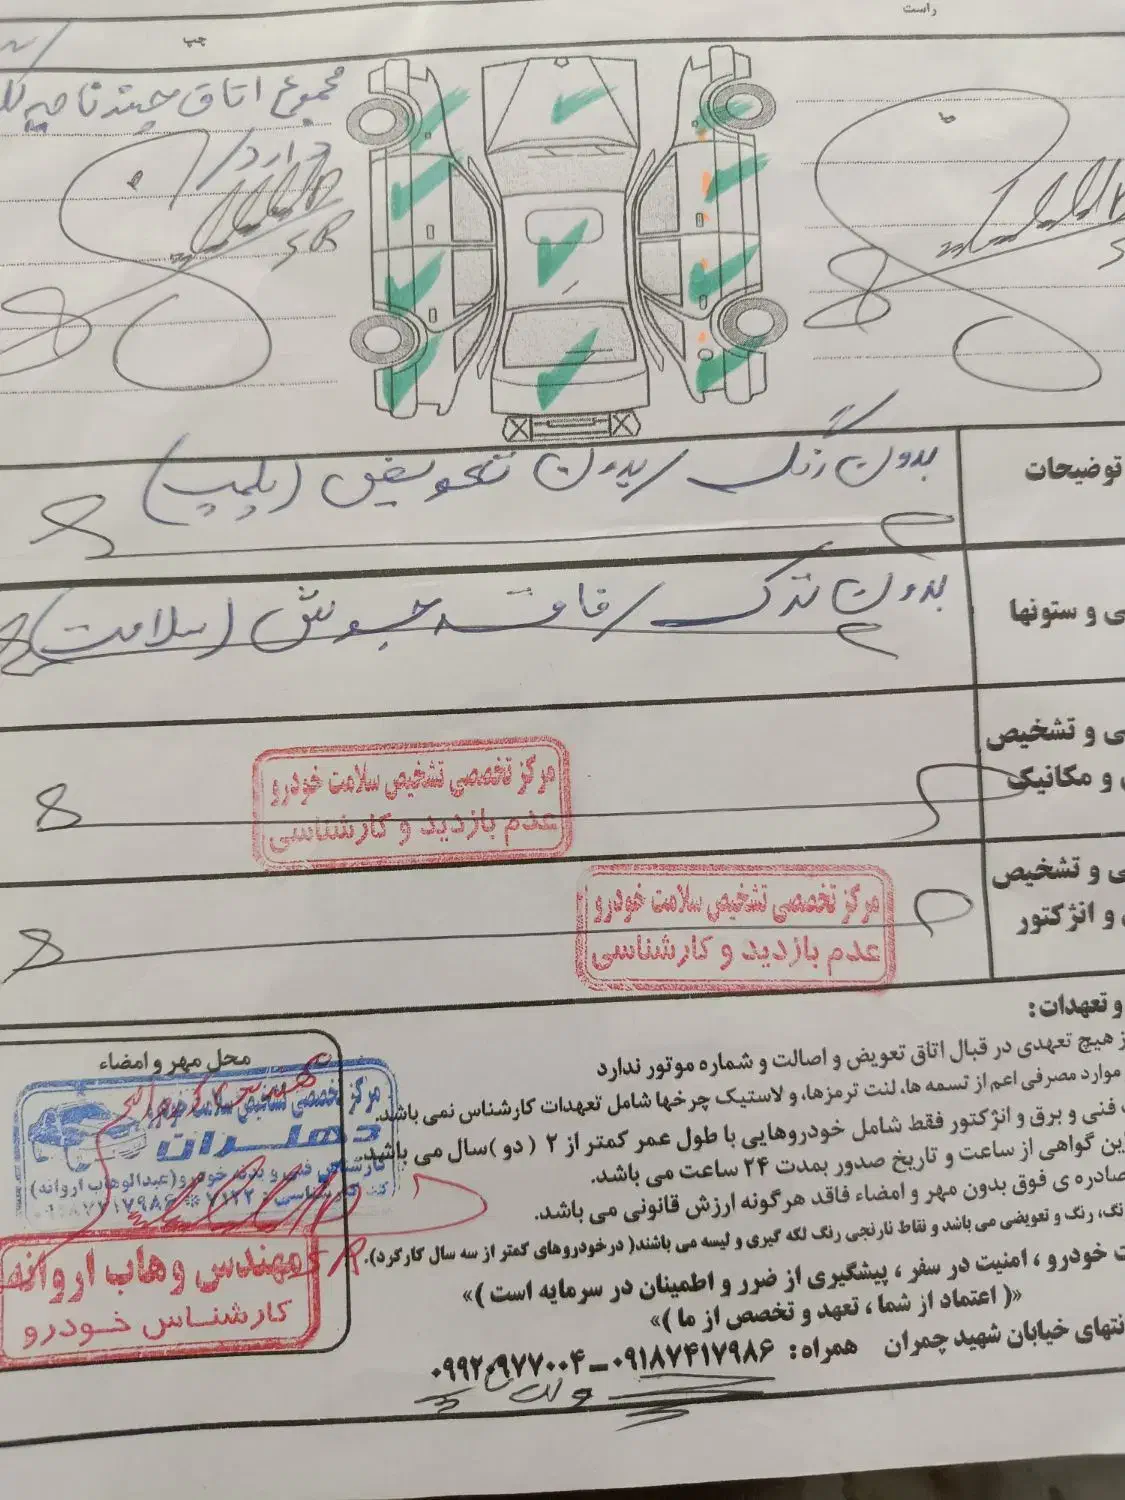 راست
چپ
مجموع اتاق چند ناحیه
دارد
توضیحات
بدون رنگ / بدون تعویض (پلمپ)
ی و ستونها
بدون ترک / فاقد جوش (سلامت)
ی و تشخیص
و مکانیک
مرکز تخصصی تشخیص سلامت خودرو
عدم بازدید و کارشناسی
ی و تشخیص
و انژکتور
مرکز تخصصی تشخیص سلامت خودرو
عدم بازدید و کارشناسی
و تعهدات:
ز هیچ تعهدی در قبال اتاق تعویض و اصالت و شماره موتور ندارد
موارد مصرفی اعم از تسمه ها، لنت ترمزها، و لاستیک چرخها شامل تعهدات کارشناس نمی باشد.
فنی و برق و انژکتور فقط شامل خودروهایی با طول عمر کمتر از ۲ (دو) سال می باشد.
این گواهی از ساعت و تاریخ صدور بمدت ۲۴ ساعت می باشد.
صادره ی فوق بدون مهر و امضاء فاقد هرگونه ارزش قانونی می باشد.
رنگ و تعویضی می باشد و نقاط نارنجی رنگ لکه گیری و لیسه می باشند( درخودروهای کمتر از سه سال کارکرد).
ت خودرو ، امنیت در سفر ، پیشگیری از ضرر و اطمینان در سرمایه است )»
«( اعتماد از شما ، تعهد و تخصص از ما )»
نتهای خیابان شهید چمران همراه: ۰۹۱۸۷۴۱۷۹۸۶ – ۰۹۹۲۰۹۷۷۰۰۴
محل مهر و امضاء
مرکز تخصصی تشخیص سلامت خودرو
دهلران
کارشناس فنی و بدنه خودرو (عبدالوهاب اروانه)
کد کارشناسی : ۷۱۲۲ * ۰۹۱۸۷۴۱۷۹۸۶
مهندس وهاب اروانه
کارشناس خودرو